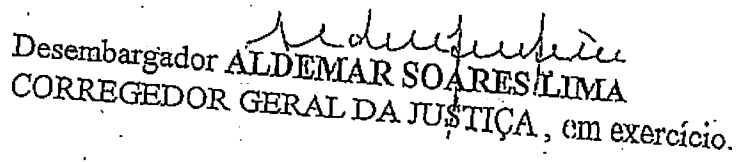 Desembargador ALDEMAR SOARES LIMA
CORREGEDOR GERAL DA JUSTIÇA, em exercício.